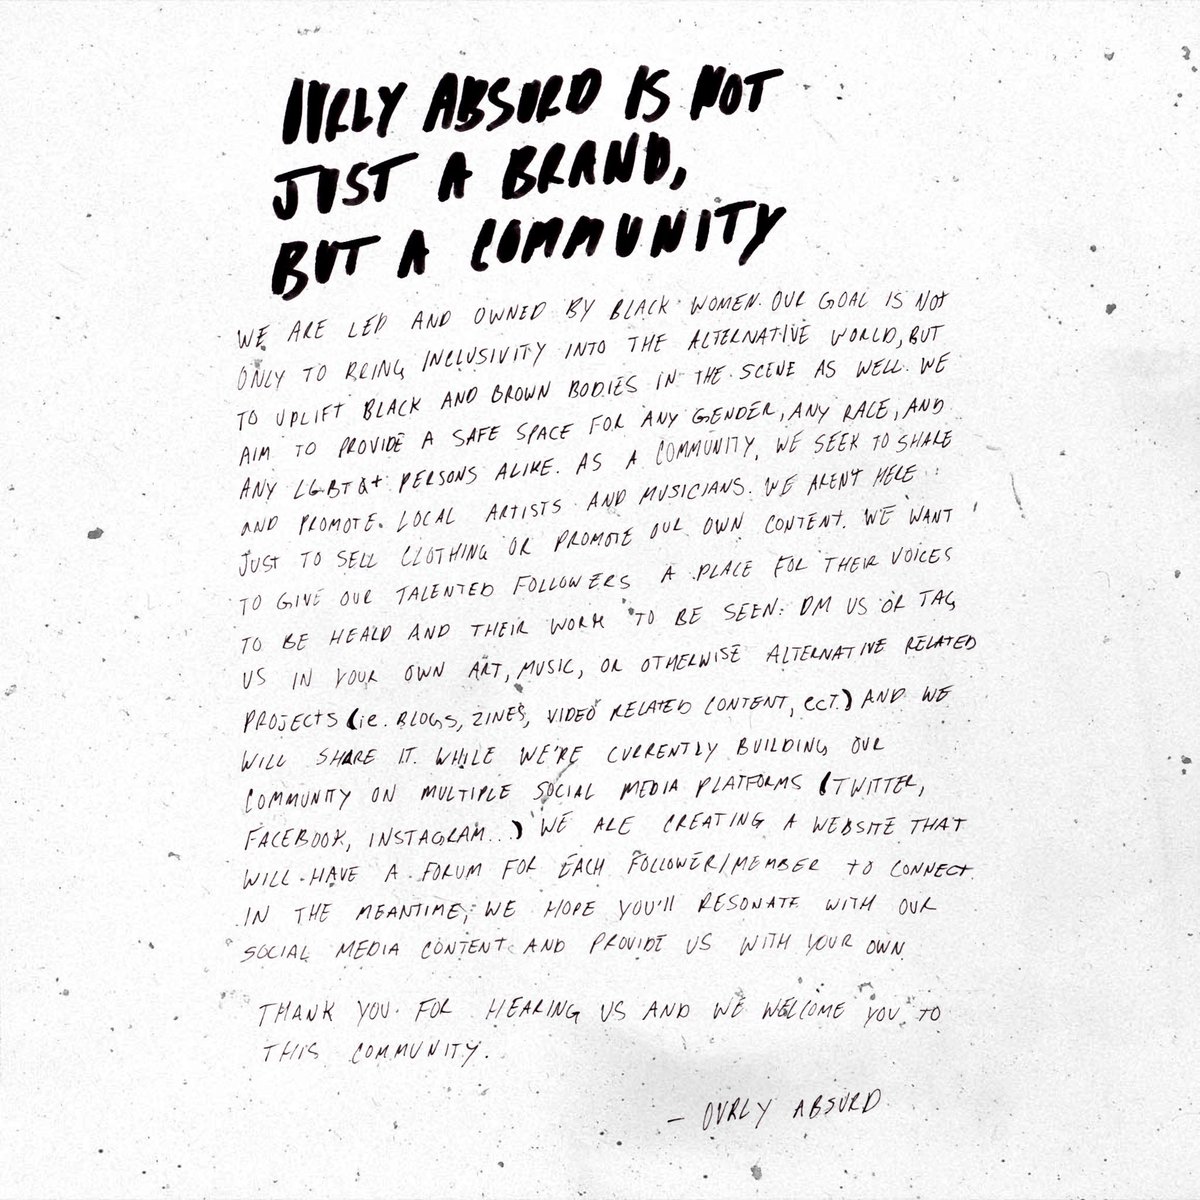 OVRLY ABSURD IS NOT
JUST A BRAND,
BUT A COMMUNITY
WE ARE LED AND OWNED BY BLACK WOMEN. OUR GOAL IS NOT
ONLY TO BRING INCLUSIVITY INTO THE ALTERNATIVE WORLD, BUT
TO UPLIFT BLACK AND BROWN BODIES IN THE SCENE AS WELL. WE
AIM TO PROVIDE A SAFE SPACE FOR ANY GENDER, ANY RACE, AND
ANY LGBTQ+ PERSONS ALIKE. AS A COMMUNITY, WE SEEK TO SHARE
AND PROMOTE LOCAL ARTISTS AND MUSICIANS. WE AREN'T HERE
JUST TO SELL CLOTHING OR PROMOTE OUR OWN CONTENT. WE WANT
TO GIVE OUR TALENTED FOLLOWERS A PLACE FOR THEIR VOICES
TO BE HEARD AND THEIR WORK TO BE SEEN. DM US OR TAG
US IN YOUR OWN ART, MUSIC, OR OTHERWISE ALTERNATIVE RELATED
PROJECTS (ie. BLOGS, ZINES, VIDEO RELATED CONTENT, ECT.) AND WE
WILL SHARE IT. WHILE WE'RE CURRENTLY BUILDING OUR
COMMUNITY ON MULTIPLE SOCIAL MEDIA PLATFORMS (TWITTER,
FACEBOOK, INSTAGRAM...) WE ARE CREATING A WEBSITE THAT
WILL HAVE A FORUM FOR EACH FOLLOWER/MEMBER TO CONNECT.
IN THE MEANTIME, WE HOPE YOU'll RESONATE WITH OUR
SOCIAL MEDIA CONTENT AND PROVIDE US WITH YOUR OWN.
THANK YOU FOR HEARING US AND WE WELCOME YOU TO
THIS COMMUNITY.
- OVRLY ABSURD